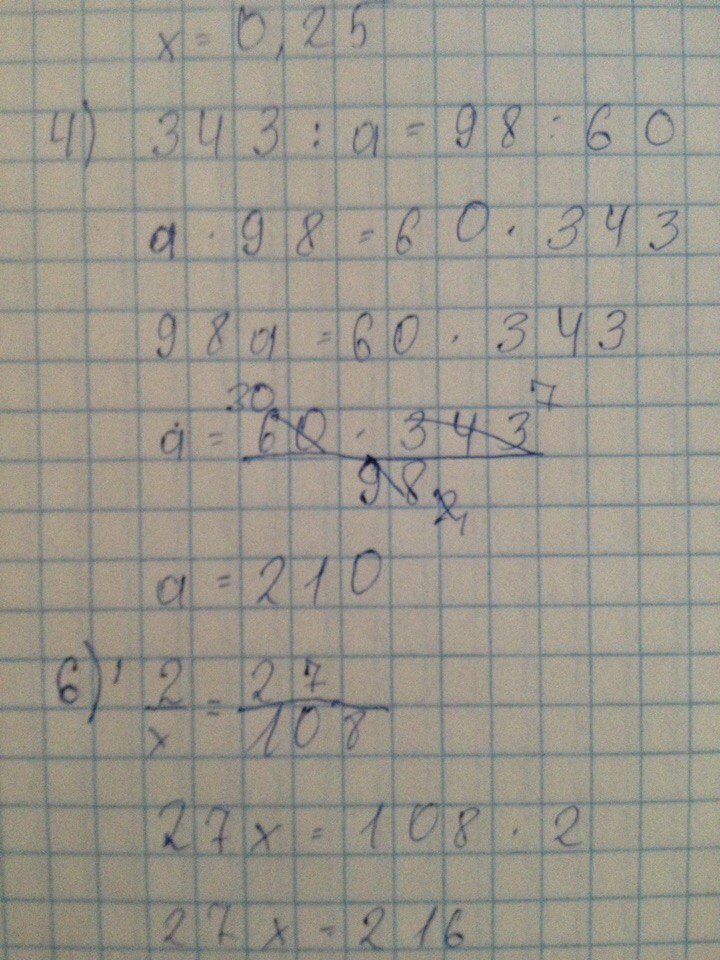 x = 0,25
4) 343 : a = 98 : 60
a · 98 = 60 · 343
98a = 60 · 343
30 7
a = 60 · 343
98 2 1
a = 210
6) 2/x = 27/108
27x = 108 · 2
27x = 216